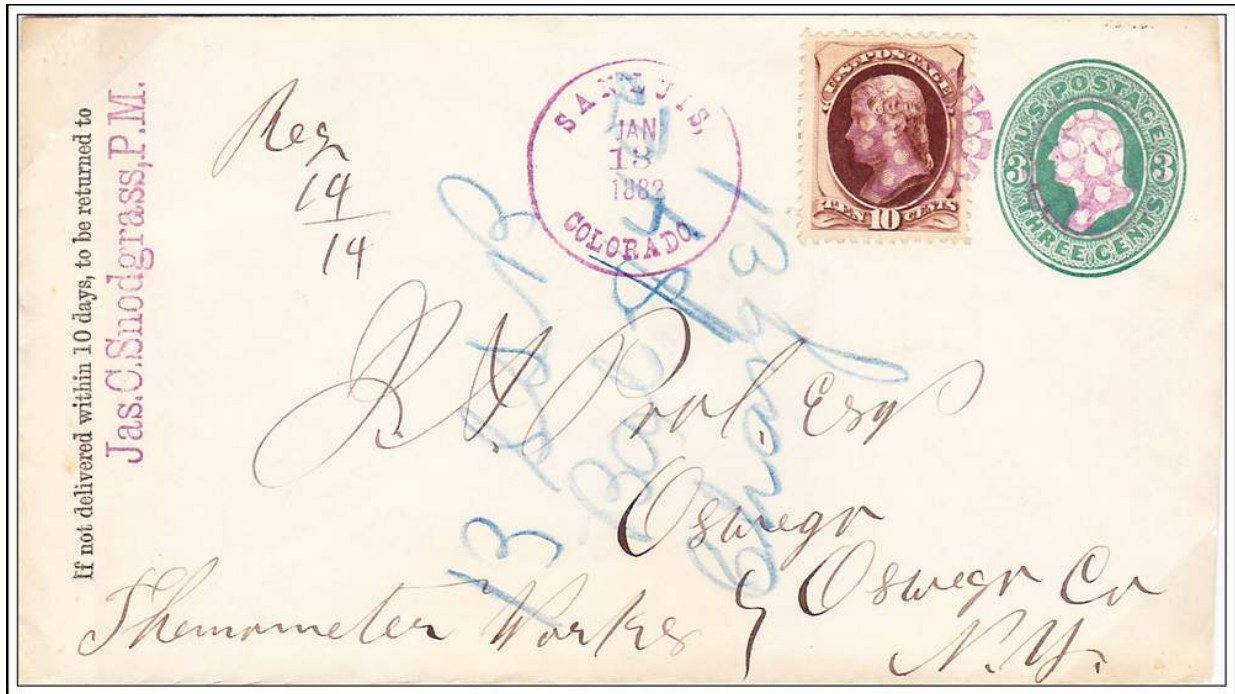 If not delivered within 10 days, to be returned to
Jas. C. Snodgrass, P.M.
Reg
14
14
SAN LUIS,
JAN
13
1882
COLORADO
U.S. POSTAGE
TEN 10 CENTS
U.S. POSTAGE
3 3
THREE CENTS
Pool. Esq
Oswego
Oswego Co
N.Y.
Themometer Works
13